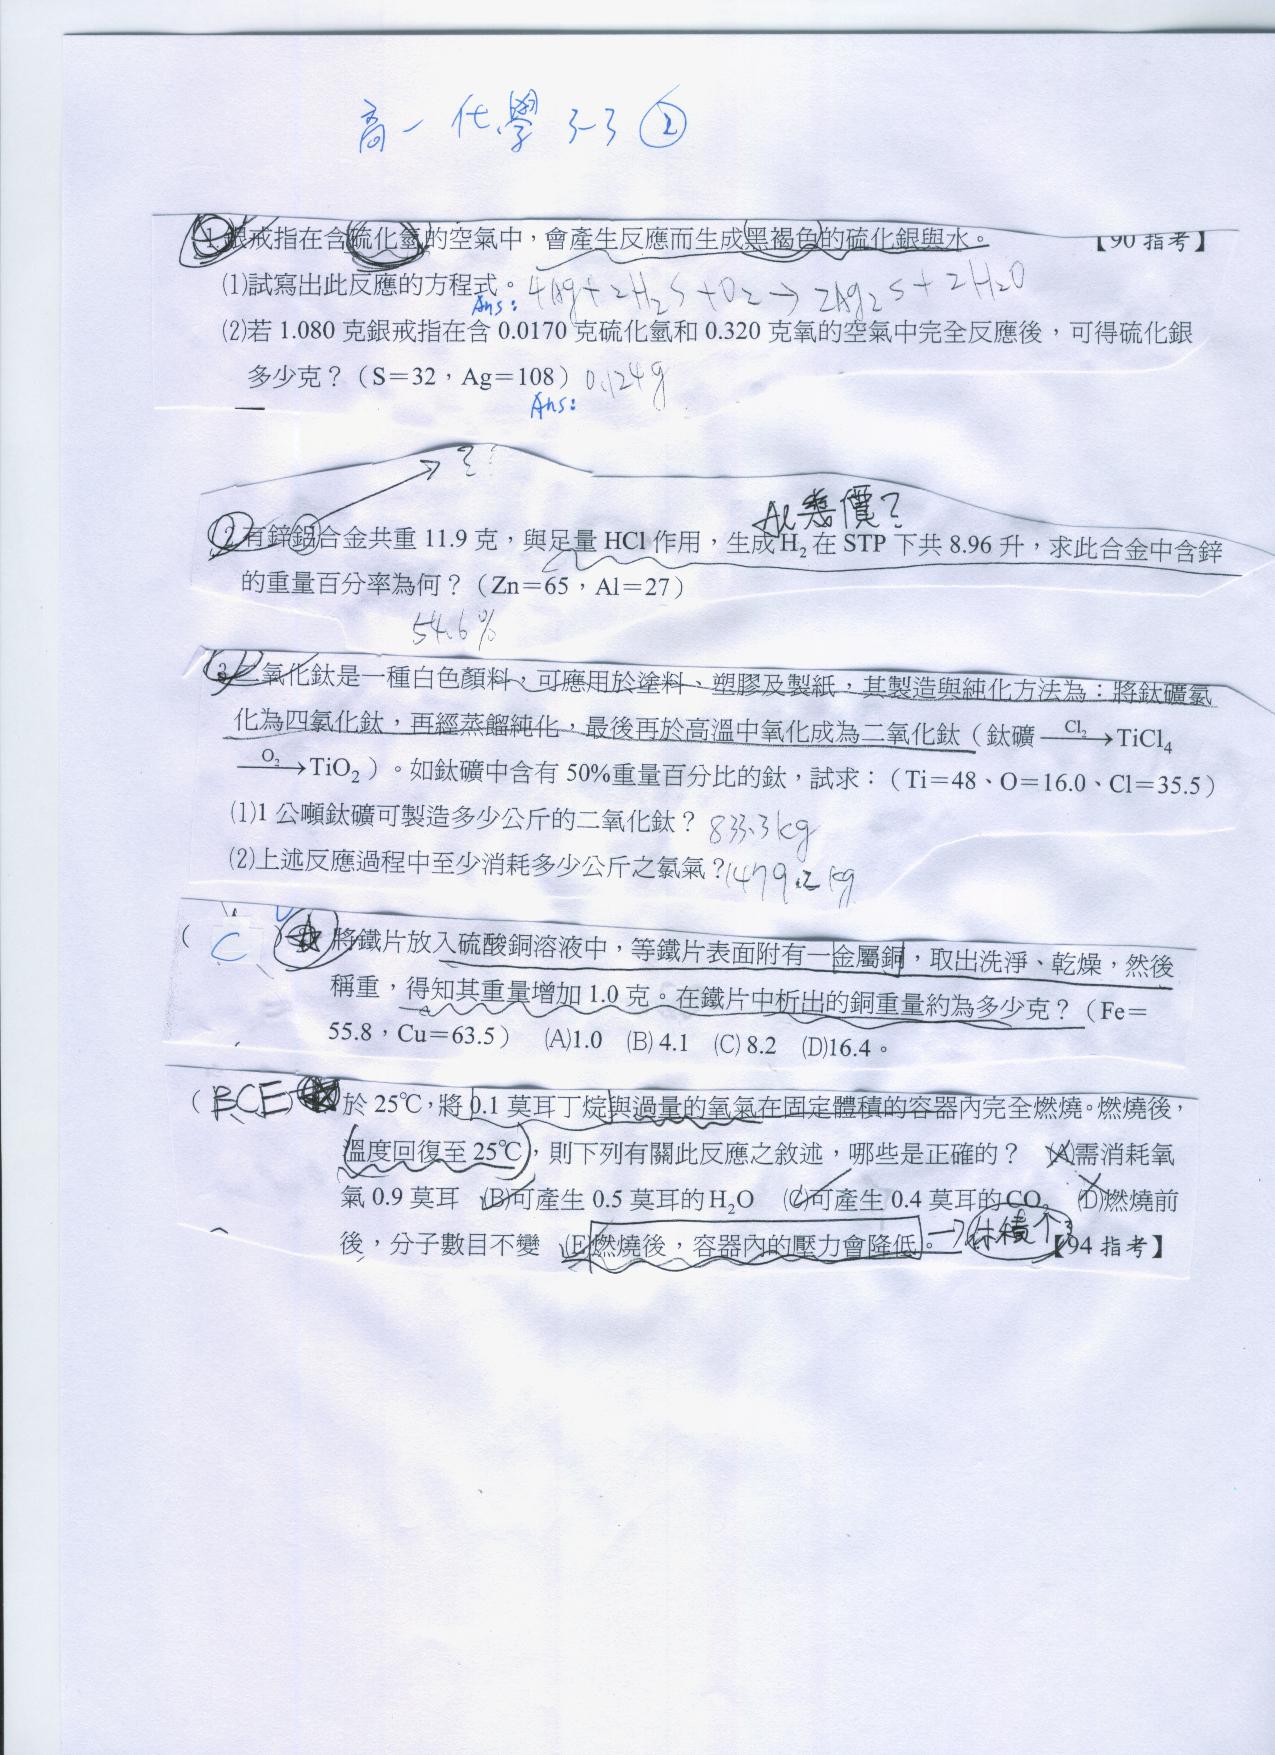 高一化學 3-3 ②
1.銀戒指在含硫化氫的空氣中，會產生反應而生成黑褐色的硫化銀與水。 【90 指考】
(1)試寫出此反應的方程式。 4Ag+2H₂S+O₂→2Ag₂S+2H₂O
Ans:
(2)若 1.080 克銀戒指在含 0.0170 克硫化氫和 0.320 克氧的空氣中完全反應後，可得硫化銀
多少克？（S＝32，Ag＝108） 0.124g
Ans:
?
Al 幾價?
2.有鋅鋁合金共重 11.9 克，與足量 HCl 作用，生成 H₂ 在 STP 下共 8.96 升，求此合金中含鋅
的重量百分率為何？（Zn＝65，Al＝27）
54.6%
3.二氧化鈦是一種白色顏料，可應用於塗料、塑膠及製紙，其製造與純化方法為：將鈦礦氯
化為四氯化鈦，再經蒸餾純化，最後再於高溫中氧化成為二氧化鈦（鈦礦 —Cl₂→ TiCl₄
—O₂→ TiO₂）。如鈦礦中含有 50%重量百分比的鈦，試求：（Ti＝48、O＝16.0、Cl＝35.5）
(1)1 公噸鈦礦可製造多少公斤的二氧化鈦？ 833.3kg
(2)上述反應過程中至少消耗多少公斤之氯氣？1479.2kg
( C ) 將鐵片放入硫酸銅溶液中，等鐵片表面附有一金屬銅，取出洗淨、乾燥，然後
稱重，得知其重量增加 1.0 克。在鐵片中析出的銅重量約為多少克？（Fe＝
55.8，Cu＝63.5） (A)1.0 (B) 4.1 (C) 8.2 (D)16.4。
( BCE ) 於 25℃，將 0.1 莫耳丁烷與過量的氧氣在固定體積的容器內完全燃燒。燃燒後，
溫度回復至 25℃，則下列有關此反應之敘述，哪些是正確的？ (A)需消耗氧
氣 0.9 莫耳 (B)可產生 0.5 莫耳的 H₂O (C)可產生 0.4 莫耳的 CO₂ (D)燃燒前
後，分子數目不變 (E)燃燒後，容器內的壓力會降低。→體積↑? 【94 指考】